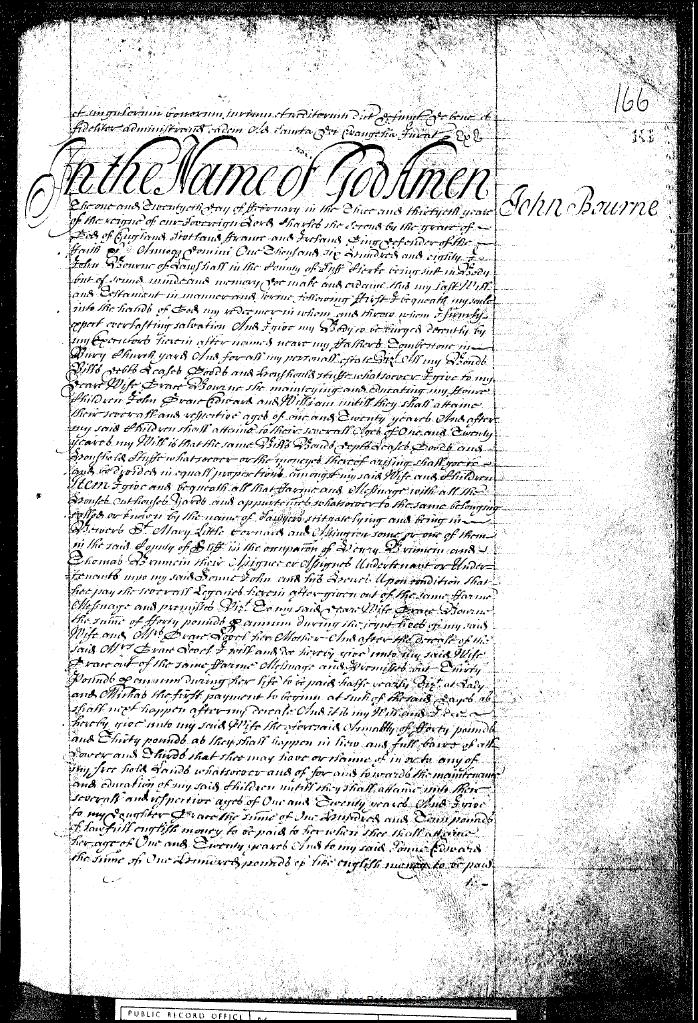 166
et singulorum bonorum jurium et creditorum dict defuncti De bene et
fideliter administrand eadem Ad Sancta Dei Evangelia Jurat Ex
In the Name of God Amen
John Bourne
The one and Twentyeth day of February in the Three and thirtyeth yeare
of the reigne of our Sovereign Lord Charles the Second by the grace of
God of England Scotland France and Ireland King Defender of the
Faith Annoq Domini One Thousand six hundred and eighty
John Bourne of Lawshall in the County of Suff Clerke being sick in Body
but of sound minde and memory doe make and ordaine this my last Will
and Testament in manner and forme following First I bequeath my soule
into the hands of God my redeemer in whom and throw whom I firmly
expect everlasting salvation And I give my Body to be buryed decently by
my Executors herein after named neare my Fathers Tombestone in
Bury Church yard And for all my personall estate viz All my Bonds
Bills debts Leases Goods and Houshould stuffe whatsoever I give to my
deare Wife Grace Bourne she mainteyning and educating my Foure
Children John Grace Edward and William untill they shall attaine
their severall and respective ages of one and Twenty yeares And after
my said Children shall attaine to their severall Ages of One and Twenty
yeares my Will is that the same Bills Bonds debts Leases Goods and
Houshold Stuffe whatsoever or the moneyes thereof arising shall goe to
and be divided in equall proportions amongst my said Wife and Children
Item I give and bequeath all that Farme and Messuage with all the
houses outhouses yards and appurtences whatsoever to the same belonging
called or known by the name of Sawyers scituate lying and being in
Bewers St Mary Little Cornard and Assington some or one of them
in the said County of Suff in the occupacon of Henry Brunwin and
Thomas Brunwin their Assignee or Assignes Undertenant or Under
tenants unto my said Sonne John and his Heires Upon condition that
hee pay the severall Legacies herein after given out of the same Farme
Messuage and premisses Viz To my said deare Wife Grace Bourne
the summe of fforty pounds p annum during the joynt lives of my said
Wife and Mrs Grace her Mother And after the decease of the
said Mrs Grace I will and doe hereby give unto my said Wife
Grace out of the same Farme Messuage and Premisses but Thirty
Pounds p annum during her life to be paid halfe yearly Viz at Lady
and Michas the first payment to beginn at such of the said dayes as
shall next happen after my decease And it is my Will and I doe
hereby give unto my said Wife the foresaid Annuity of fforty pounds
and Thirty pounds as they shall happen in lieu and full barre of all
Dower and Thirds that shee may have or clayme of in or to any of
my free hold Lands whatsoever and of for and towards the maintenance
and education of my said Children untill they shall attaine unto their
severall and respective ages of One and Twenty yeares And I give
to my daughter Grace the summe of One hundred and pounds
of lawfull english money to be paid to her when shee shall attaine
her age of One and Twenty yeares And to my said Sonne Edward
the summe of One hundred pounds of like english money to be paid
PUBLIC RECORD OFFICE